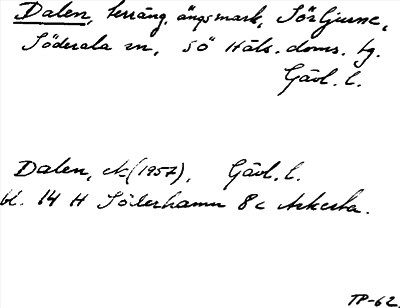 Dalen, terräng, ängsmark, Sörljusne,
Söderala sn, Sö Häls. doms. tg.
Gävl. l.
Dalen, ek (1957), Gävl. l.
bl. 14 H Söderhamn 8 c Askesta.
TP-62.